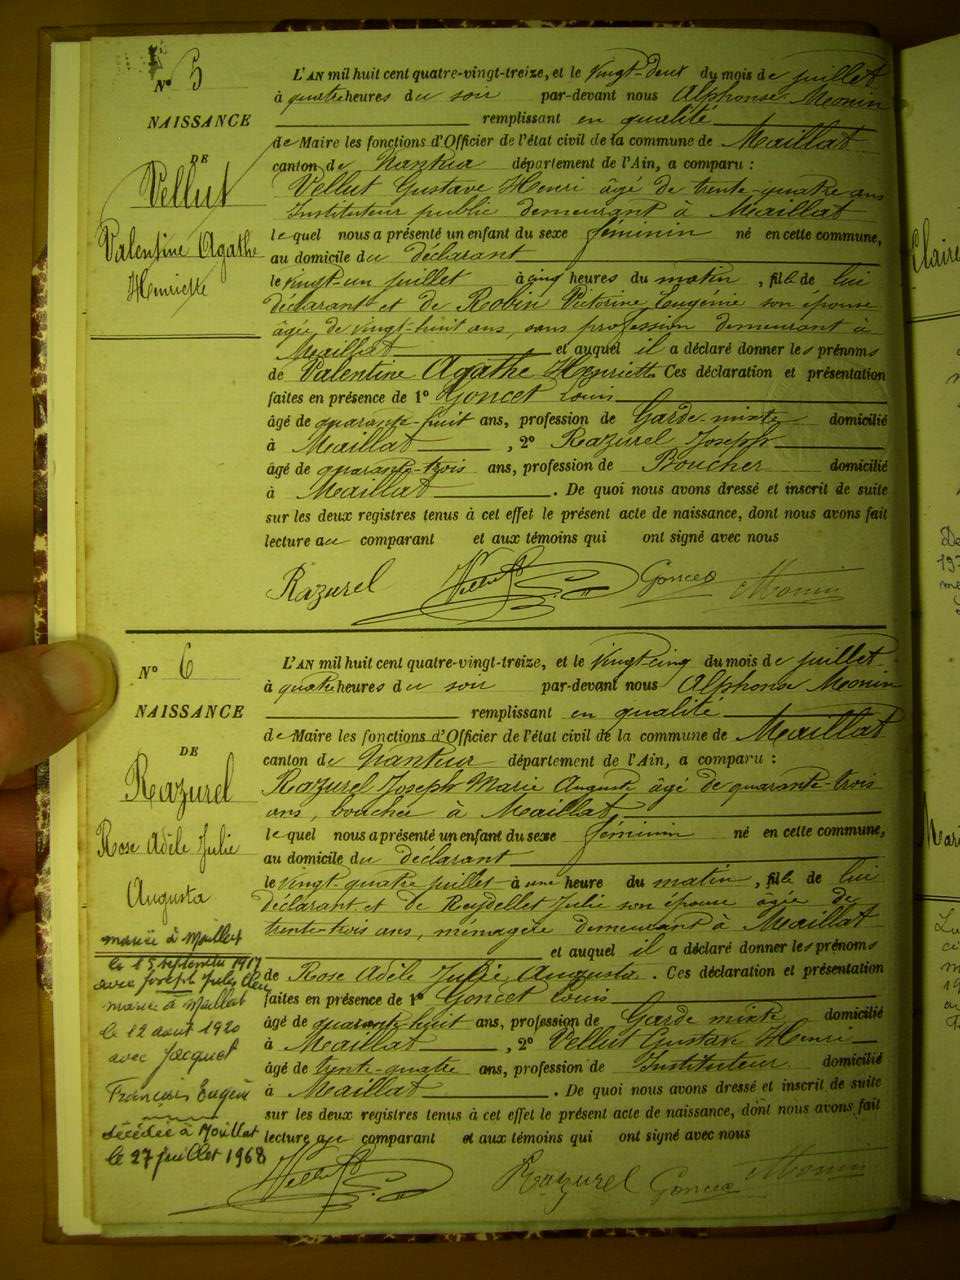 N° 5
NAISSANCE
DE
Vellut
Valentine Agathe
Henriette
L'AN mil huit cent quatre-vingt-treize, et le vingt-deux du mois de juillet
à quatre heures du soir par-devant nous Alphonse Monin
remplissant en qualité
de Maire les fonctions d'Officier de l'état civil de la commune de Maillat
canton de Nantua département de l'Ain, a comparu :
Vellut Gustave Henri âgé de trente-quatre ans
Instituteur public demeurant à Maillat
lequel nous a présenté un enfant du sexe féminin né en cette commune,
au domicile du déclarant
le vingt-un juillet à cinq heures du matin, fille de lui
déclarant et de Robin Victorine Eugenie son épouse
âgée de vingt-huit ans, sans profession demeurant à
Maillat et auquel il a déclaré donner les prénoms
de Valentine Agathe Henriette Ces déclaration et présentation
faites en présence de 1° Goncet Louis
âgé de quarante-huit ans, profession de Garde mixte domicilié
à Maillat, 2° Razurel Joseph
âgé de quarante-trois ans, profession de Boucher domicilié
à Maillat. De quoi nous avons dressé et inscrit de suite
sur les deux registres tenus à cet effet le présent acte de naissance, dont nous avons fait
lecture au comparant et aux témoins qui ont signé avec nous
Razurel Vellut Goncet Monin
N° 6
NAISSANCE
DE
Razurel
Rose Adèle Julie
Augusta
mariée à Maillat
le 15 septembre 1917
avec Joseph Jules
mariée à Maillat
le 12 aout 1920
avec Jacquet
François Eugène
décédée à Maillat
le 27 juillet 1968
L'AN mil huit cent quatre-vingt-treize, et le vingt-cinq du mois de juillet
à quatre heures du soir par-devant nous Alphonse Monin
remplissant en qualité
de Maire les fonctions d'Officier de l'état civil de la commune de Maillat
canton de Nantua département de l'Ain, a comparu :
Razurel Joseph Marie Auguste âgé de quarante-trois
ans, boucher à Maillat
lequel nous a présenté un enfant du sexe féminin né en cette commune,
au domicile du déclarant
le vingt-quatre juillet à une heure du matin, fille de lui
déclarant et de Reydellet Julie son épouse âgée de
trente-trois ans, ménagère demeurant à Maillat
et auquel il a déclaré donner les prénoms
de Rose Adèle Julie Augusta. Ces déclaration et présentation
faites en présence de 1° Goncet Louis
âgé de quarante-huit ans, profession de Garde mixte domicilié
à Maillat, 2° Vellut Gustave Henri
âgé de trente-quatre ans, profession de Instituteur domicilié
à Maillat. De quoi nous avons dressé et inscrit de suite
sur les deux registres tenus à cet effet le présent acte de naissance, dont nous avons fait
lecture au comparant et aux témoins qui ont signé avec nous
Vellut Razurel Goncet Monin